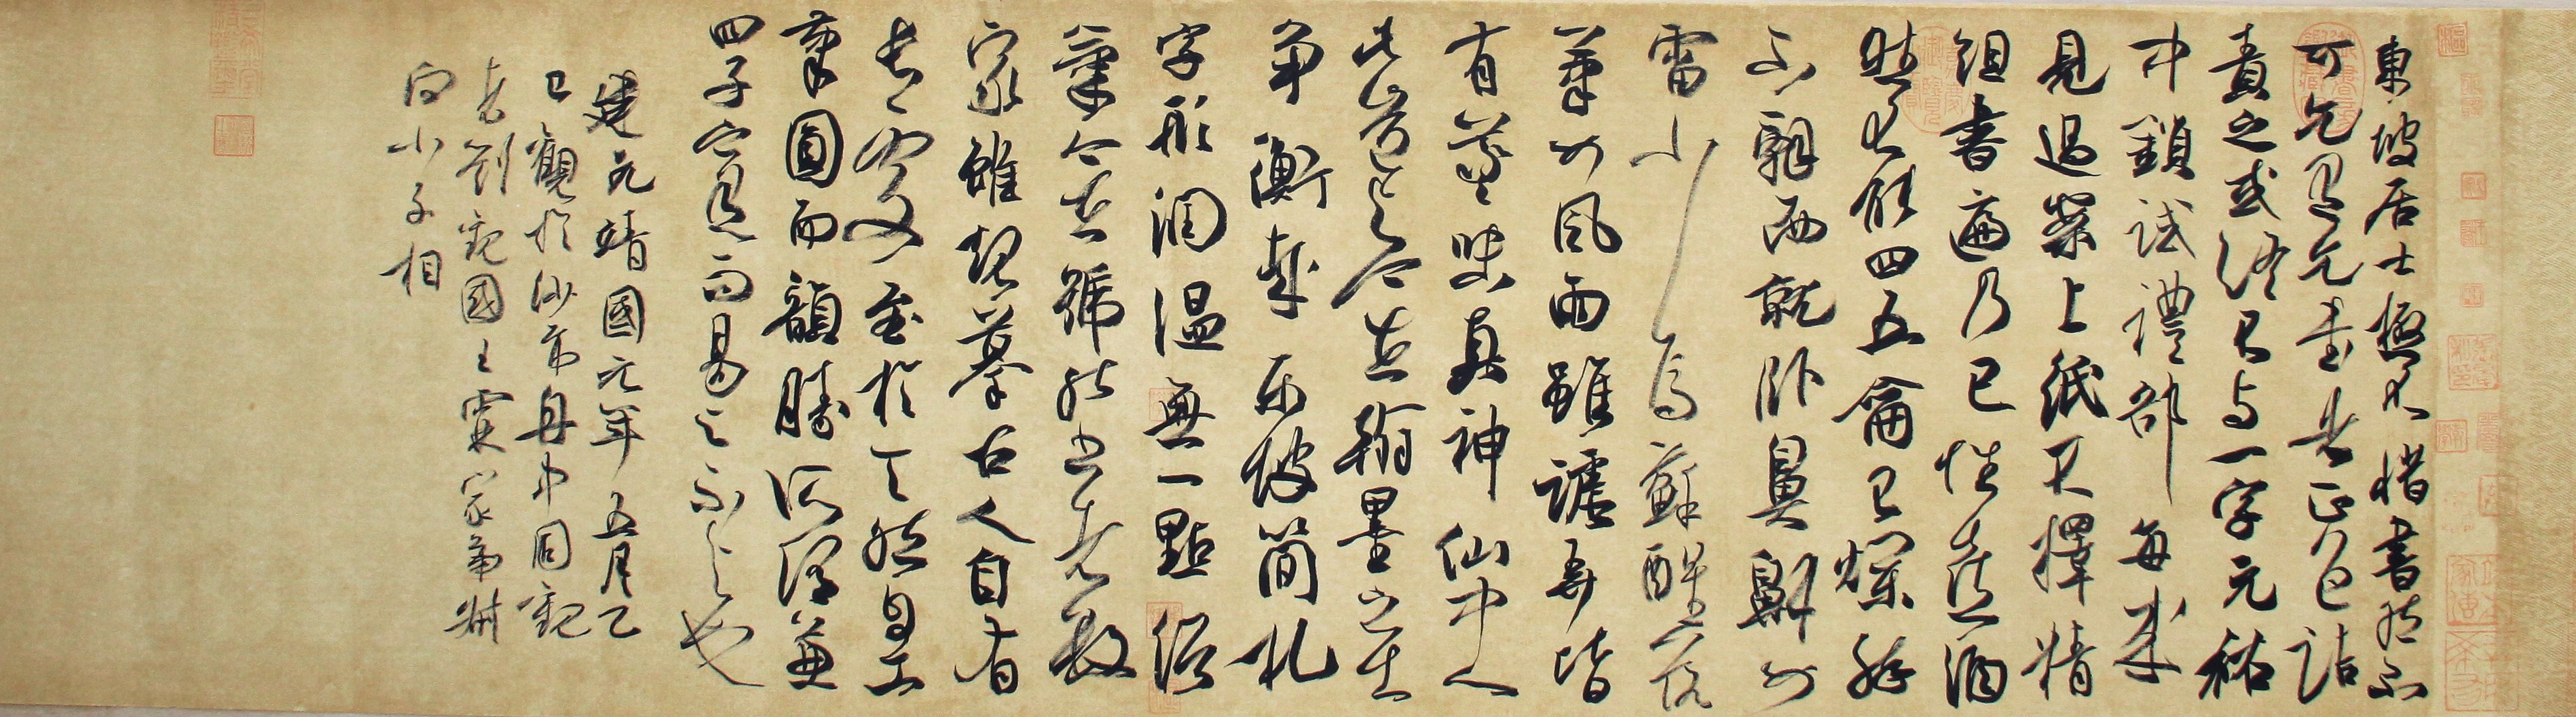 東坡居士極不惜書然不
可乞有乞書者正色詰
責之或終不與一字元祐
中鎖試禮部每来
見過案上紙不擇精
粗書遍乃已性喜酒
然不能四五龠已爛醉
不辭而就卧鼻鼾如
雷少焉蘇醒落
筆如風雨雖謔弄皆
有義味真神仙中人
此豈與今世翰墨之士
争衡哉東坡簡札
字形温潤無一點俗
氣今世號能書者數
家雖規摹古人自有
長處至於天然自工
筆圓而韻勝所謂兼
四子之有以易之不与也
建中靖國元年五月乙
巳觀於沙市舟中同觀
者劉觀國王霖家弟叔
向小子相